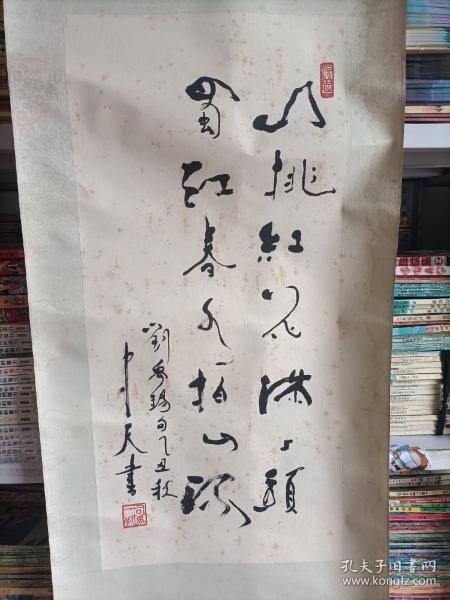 山桃紅花滿上頭
蜀江春水拍山流
劉禹錫句乙丑秋
中天書
孔夫子旧书网
www.kongfz.com